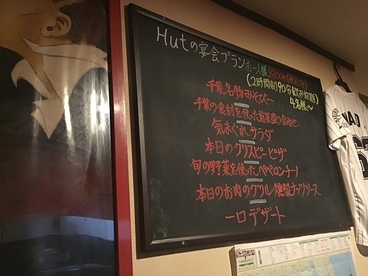 Hutの宴会プラン お一人様
(2時間制90分飲み放題)
4名様〜
千葉の食材を使った前菜盛り合わせ
気まぐれサラダ
本日のクリスピーピザ
旬の野菜を使ったペペロンチーノ
本日のお肉のグリル
一口デザート
NAO